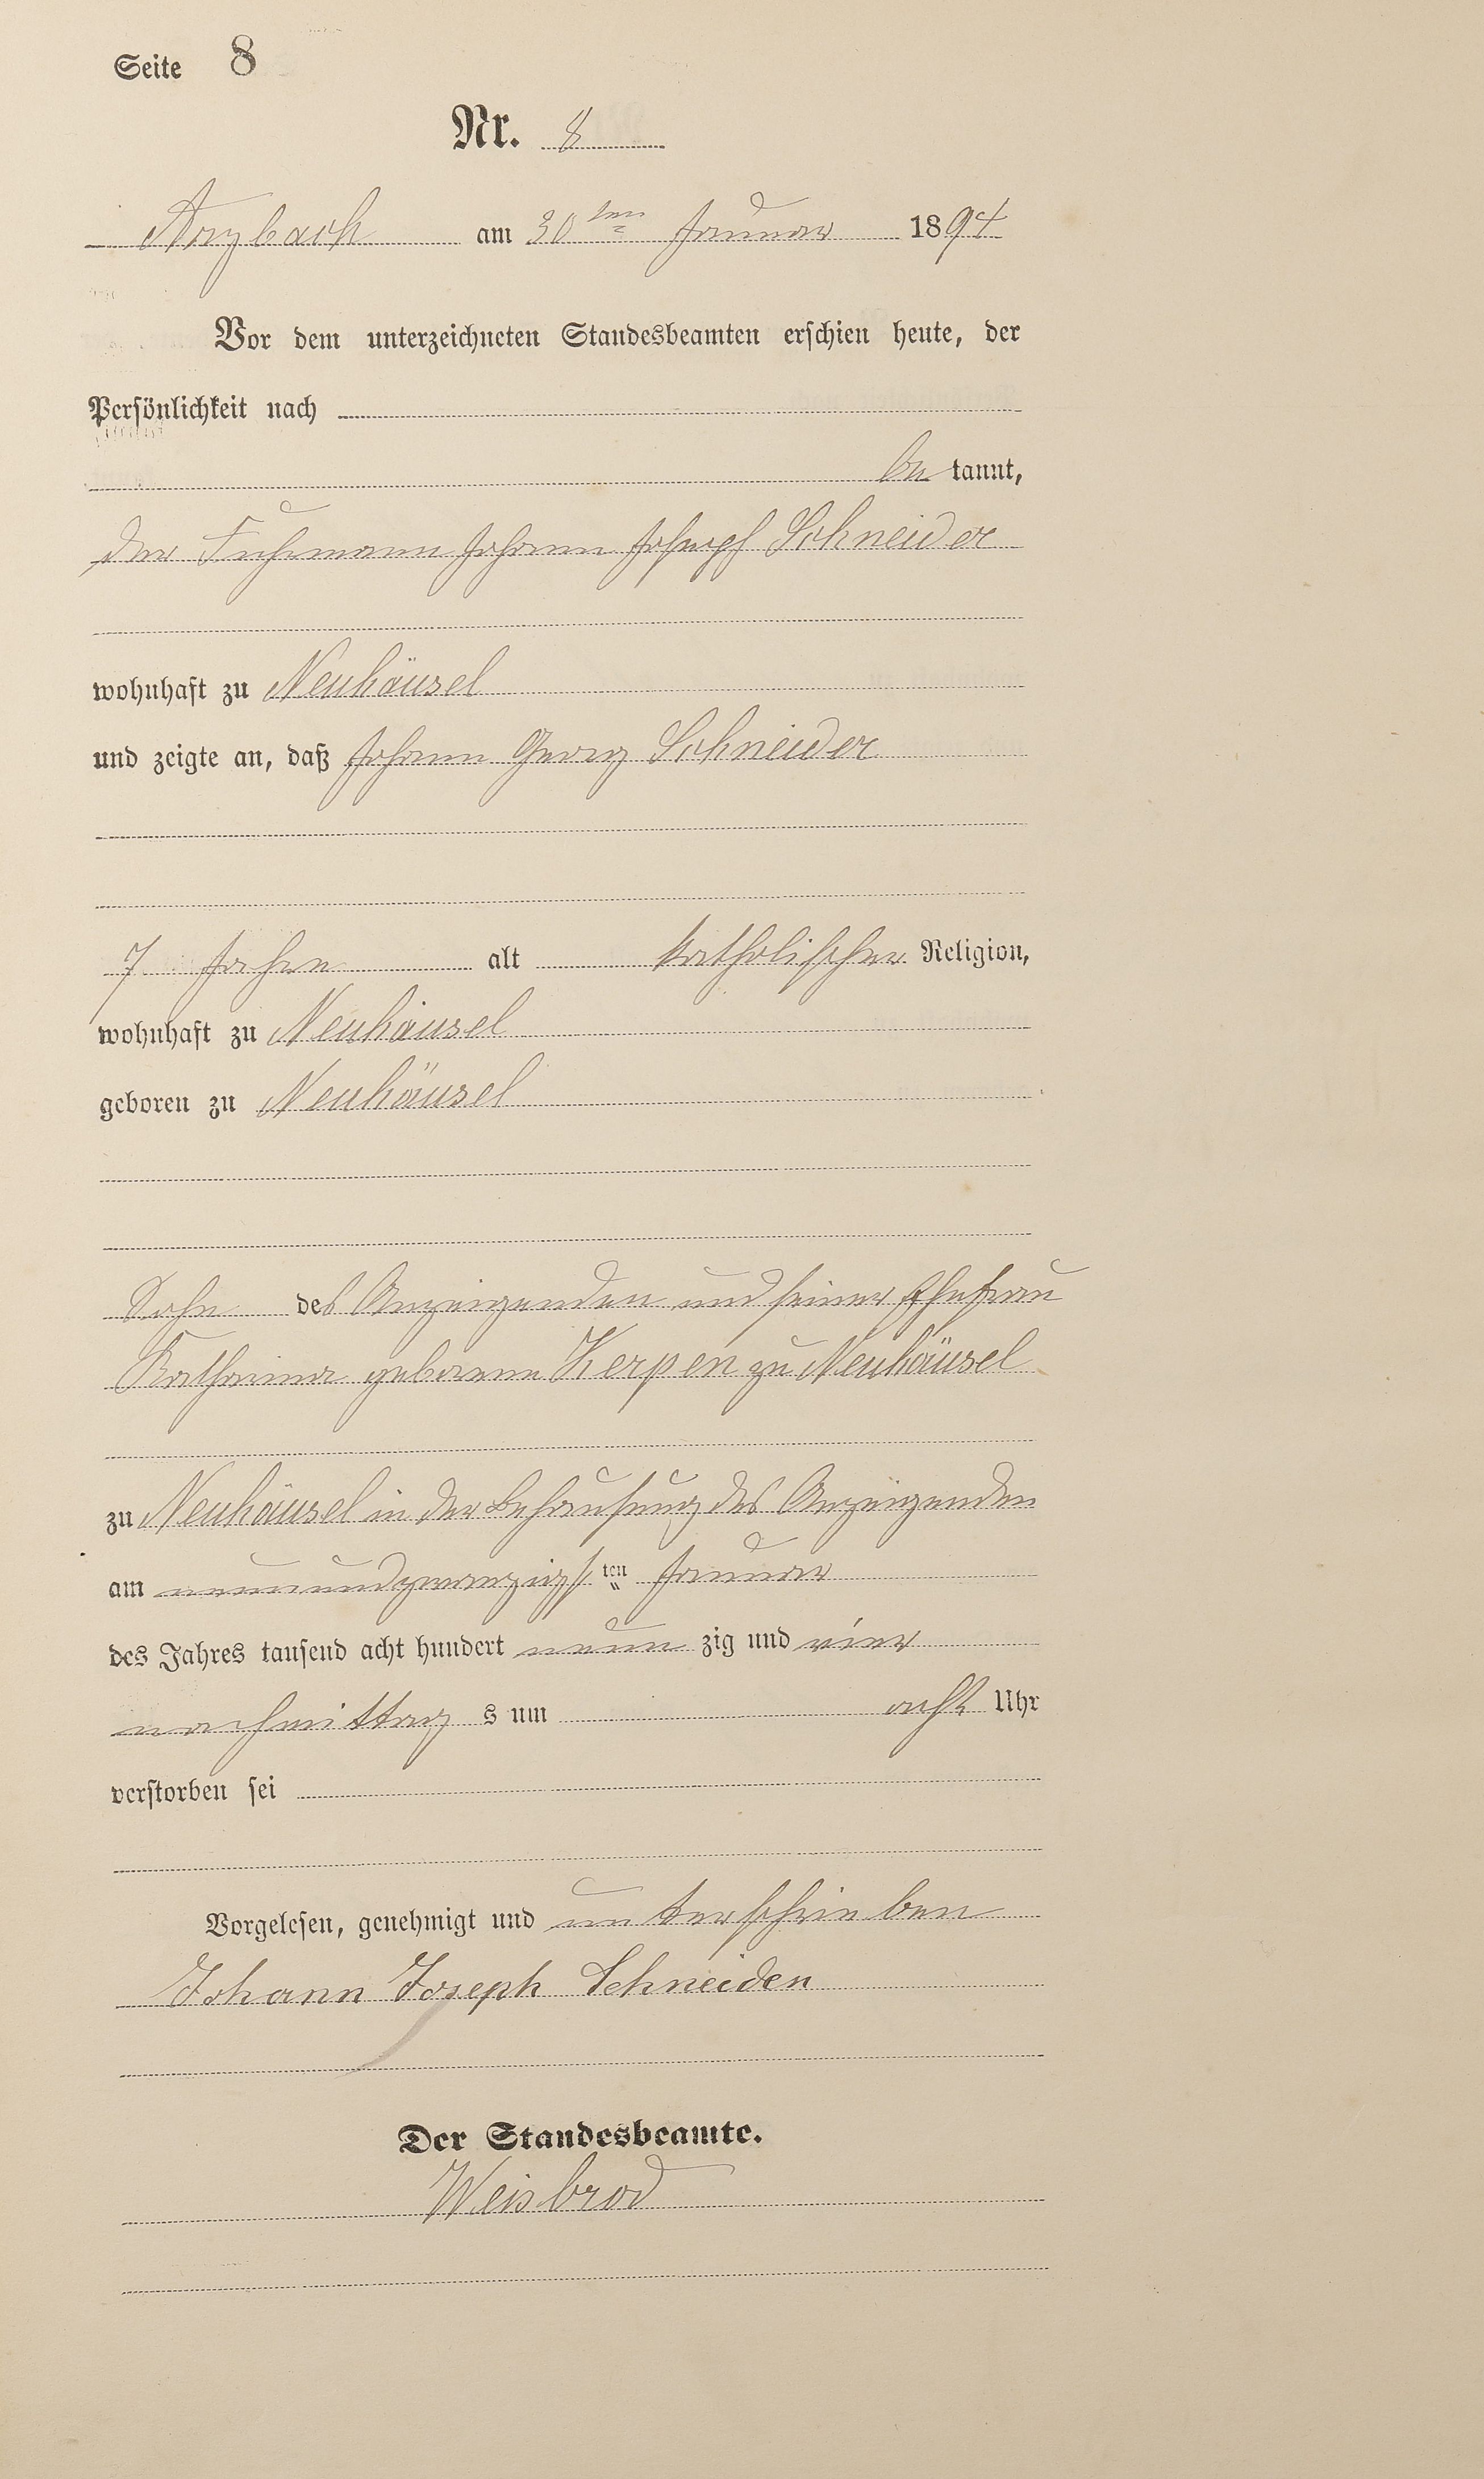 Seite 8
Nr. 8
Arzbach am 30ten Januar 1894
Vor dem unterzeichneten Standesbeamten erschien heute, der
Persönlichkeit nach
be kannt,
der Fuhrmann Johann Joseph Schneider
wohnhaft zu Neuhäusel
und zeigte an, daß Johann Georg Schneider
7 Jahre alt katholischer Religion,
wohnhaft zu Neuhäusel
geboren zu Neuhäusel
Sohn des Anzeigenden und seiner Ehefrau
Katharina geborene Kerpen zu Neuhäusel
zu Neuhäusel in der Behausung des Anzeigenden
am neunundzwanzigsten Januar
des Jahres tausend acht hundert neun zig und vier
nachmittag s um acht Uhr
verstorben sei
Vorgelesen, genehmigt und unterschrieben
Johann Joseph Schneider
Der Standesbeamte.
Weisbrod